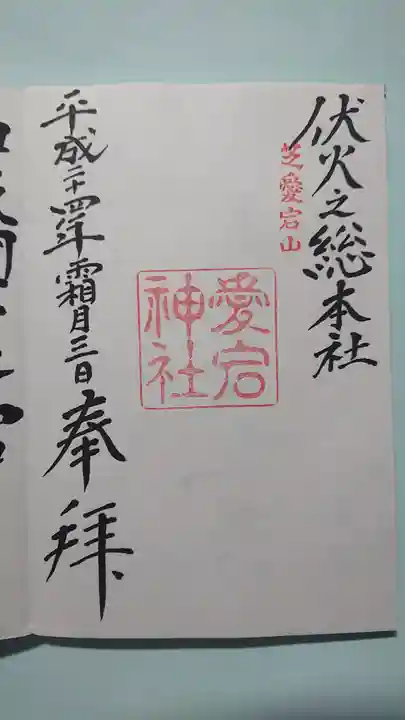 伏火之総本社
芝愛宕山
愛宕
神社
平成二十四年霜月三日奉拝